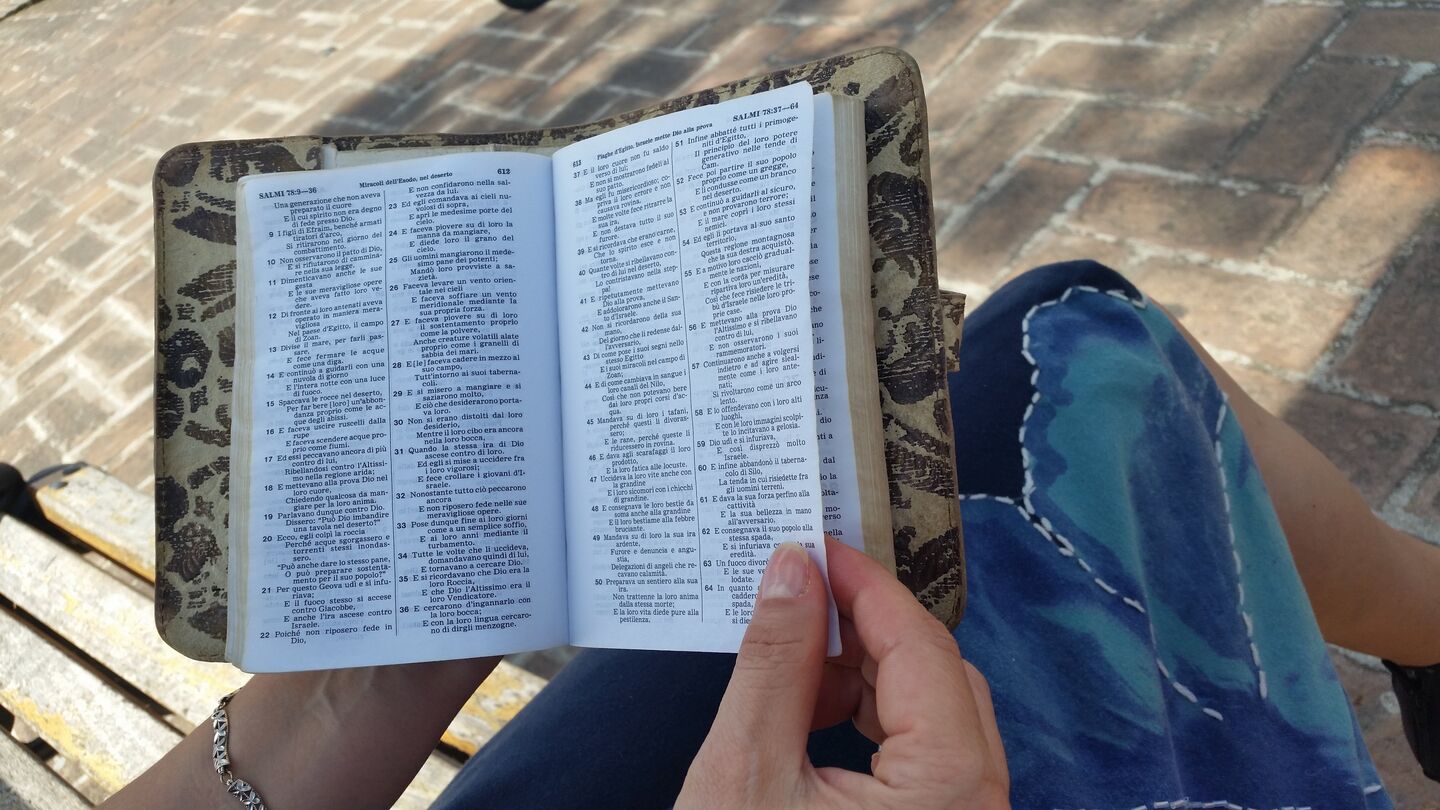 SALMI 78:9—36
Miracoli dell'Esodo, nel deserto
612
Una generazione che non aveva
preparato il cuore
E il cui spirito non era degno
di fede presso Dio.
9 I figli di Efraim, benché armati
tiratori d'arco,
Si ritirarono nel giorno del
combattimento.
10 Non osservarono il patto di Dio,
E si rifiutarono di cammina-
re nella sua legge.
11 Dimenticavano anche le sue
gesta
E le sue meravigliose opere
che aveva fatto loro ve-
dere.
12 Di fronte ai loro antenati aveva
operato in maniera mera-
vigliosa
Nel paese d'Egitto, il campo
di Zoan.
13 Divise il mare, per farli pas-
sare,
E fece fermare le acque
come una diga.
14 E continuò a guidarli con una
nuvola di giorno
E l'intera notte con una luce
di fuoco.
15 Spaccava le rocce nel deserto,
Per far bere [loro] un'abbon-
danza proprio come le ac-
que degli abissi.
16 E faceva uscire ruscelli dalla
rupe
E faceva scendere acque pro-
prio come fiumi.
17 Ed essi peccavano ancora di più
contro di lui,
Ribellandosi contro l'Altissi-
mo nella regione arida;
18 E mettevano alla prova Dio nel
loro cuore,
Chiedendo qualcosa da man-
giare per la loro anima.
19 Parlavano dunque contro Dio.
Dissero: "Può Dio imbandire
una tavola nel deserto?"
20 Ecco, egli colpì la roccia
Perché acque sgorgassero e
torrenti stessi inondas-
sero.
"Può anche dare lo stesso pane,
O può preparare sostenta-
mento per il suo popolo?"
21 Per questo Geova udì e si infu-
riava;
E il fuoco stesso si accese
contro Giacobbe,
E anche l'ira ascese contro
Israele.
22 Poiché non riposero fede in
Dio,
E non confidarono nella sal-
vezza da lui.
23 Ed egli comandava ai cieli nu-
volosi di sopra,
E aprì le medesime porte del
cielo.
24 E faceva piovere su di loro la
manna da mangiare,
E diede loro il grano del
cielo.
25 Gli uomini mangiarono il mede-
simo pane dei potenti;
Mandò loro provviste a sa-
zietà.
26 Faceva levare un vento orien-
tale nei cieli
E faceva soffiare un vento
meridionale mediante la
sua propria forza.
27 E faceva piovere su di loro
il sostentamento proprio
come la polvere,
Anche creature volatili alate
proprio come i granelli di
sabbia dei mari.
28 E [le] faceva cadere in mezzo al
suo campo,
Tutt'intorno ai suoi taberna-
coli.
29 E si misero a mangiare e si
saziarono molto,
E ciò che desiderarono porta-
va loro.
30 Non si erano distolti dal loro
desiderio,
Mentre il loro cibo era ancora
nella loro bocca,
31 Quando la stessa ira di Dio
ascese contro di loro.
Ed egli si mise a uccidere fra
i loro vigorosi;
E fece crollare i giovani d'I-
sraele.
32 Nonostante tutto ciò peccarono
ancora
E non riposero fede nelle sue
meravigliose opere.
33 Pose dunque fine ai loro giorni
come a un semplice soffio,
E ai loro anni mediante il
turbamento.
34 Tutte le volte che li uccideva,
domandavano quindi di lui,
E tornavano a cercare Dio.
35 E si ricordavano che Dio era la
loro Roccia,
E che Dio l'Altissimo era il
loro Vendicatore.
36 E cercarono d'ingannarlo con
la loro bocca;
E con la loro lingua cercaro-
no di dirgli menzogne.
613
Piaghe d'Egitto. Israele mette Dio alla prova
SALMI 78:37—64
37 E il loro cuore non fu saldo
verso di lui;
E non si mostrarono fedeli al
suo patto.
38 Ma egli fu misericordioso; co-
priva il loro errore e non
causava rovina.
E molte volte fece ritrarre la
sua ira,
E non destava tutto il suo
furore.
39 E si ricordava che erano carne,
Che lo spirito esce e non
torna.
40 Quante volte si ribellavano con-
tro di lui nel deserto,
Lo contristavano nella step-
pa!
41 E ripetutamente mettevano
Dio alla prova,
E addoloravano anche il San-
to d'Israele.
42 Non si ricordarono della sua
mano,
Del giorno che li redense dal-
l'avversario,
43 Di come pose i suoi segni nello
stesso Egitto
E i suoi miracoli nel campo di
Zoan;
44 E di come cambiava in sangue i
loro canali del Nilo,
Così che non potevano bere
dai loro propri corsi d'ac-
qua.
45 Mandava su di loro i tafani,
perché questi li divoras-
sero,
E le rane, perché queste li
riducessero in rovina.
46 E dava agli scarafaggi il loro
prodotto,
E la loro fatica alle locuste.
47 Uccideva la loro vite anche con
la grandine
E i loro sicomori con i chicchi
di grandine.
48 E consegnava le loro bestie da
soma anche alla grandine
E il loro bestiame alla febbre
bruciante.
49 Mandava su di loro la sua ira
ardente,
Furore e denuncia e angu-
stia,
Delegazioni di angeli che re-
cavano calamità.
50 Preparava un sentiero alla sua
ira.
Non trattenne la loro anima
dalla stessa morte;
E la loro vita diede pure alla
pestilenza.
51 Infine abbatté tutti i primoge-
niti d'Egitto,
Il principio del loro potere
generativo nelle tende di
Cam.
52 Fece poi partire il suo popolo
proprio come un gregge,
E li condusse come un branco
nel deserto.
53 E continuò a guidarli al sicuro,
e non provarono terrore;
E il mare coprì i loro stessi
nemici.
54 Ed egli li portava al suo santo
territorio,
Questa regione montagnosa
che la sua destra acquistò.
55 E a motivo loro cacciò gradual-
mente le nazioni,
E con la corda per misurare
ripartiva loro un'eredità,
Così che fece risiedere le tri-
bù d'Israele nelle loro pro-
prie case.
56 E mettevano alla prova Dio
l'Altissimo e si ribellavano
contro di lui,
E non osservarono i suoi
rammemoratori.
57 Continuarono anche a volgersi
indietro e ad agire sleal-
mente come i loro ante-
nati;
Si rivoltarono come un arco
lento.
58 E lo offendevano con i loro alti
luoghi,
E con le loro immagini scolpi-
te lo incitavano a gelosia.
59 Dio udì e si infuriava,
E così disprezzò molto
Israele.
60 E infine abbandonò il taberna-
colo di Silo,
La tenda in cui risiedette fra
gli uomini terreni.
61 E dava la sua forza perfino alla
cattività
E la sua bellezza in mano
all'avversario.
62 E consegnava il suo popolo alla
stessa spada,
E si infuriava con la sua
eredità.
63 Un fuoco divor
E le sue ve
lodate.
64 In quanto
cadder
spada,
E le lo
si die